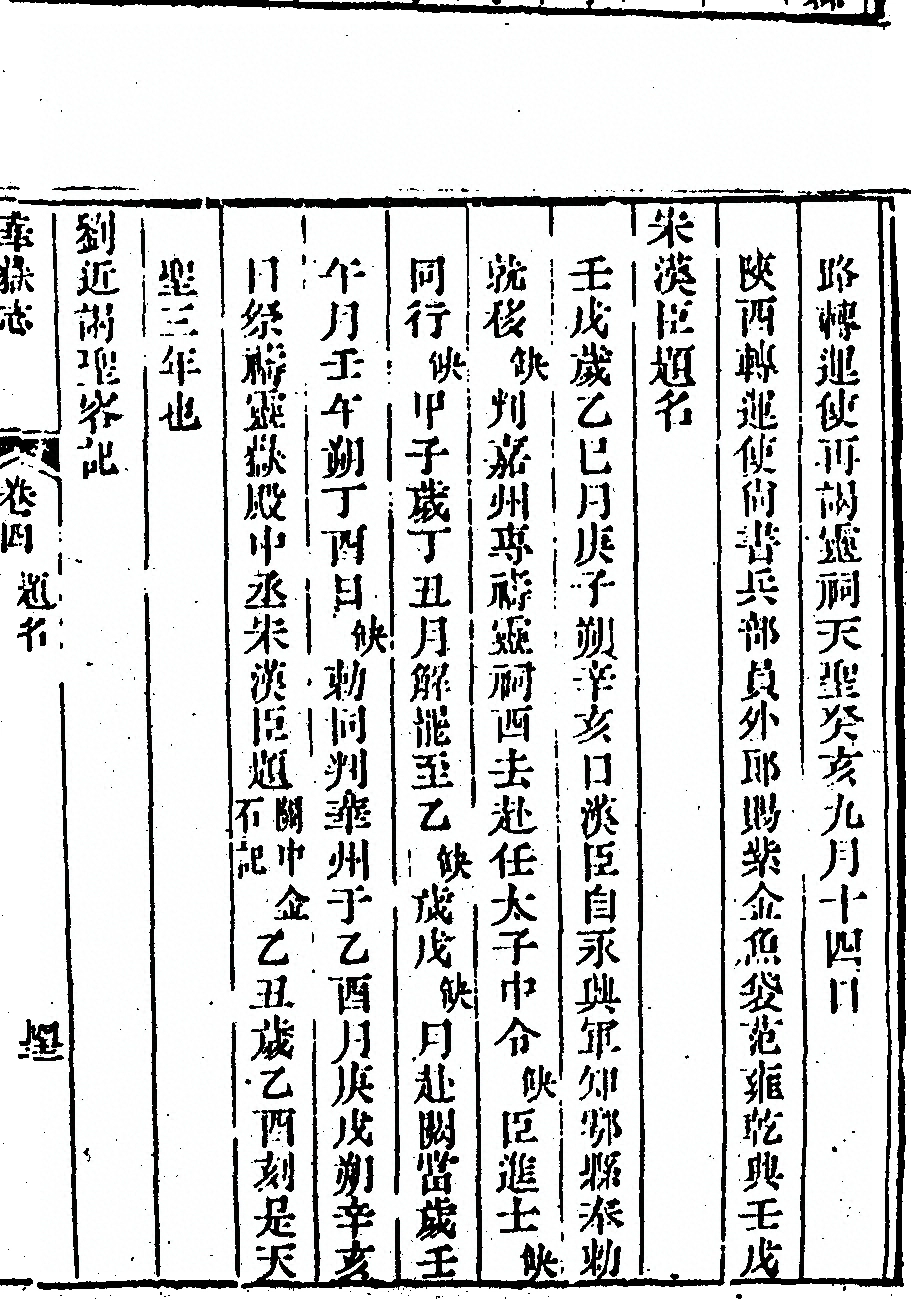 路轉運使再謁靈祠天聖癸亥九月十四日
陝西轉運使尙書兵部員外郎賜紫金魚袋范雍乾興壬戌
朱漢臣題名
壬戌歲乙巳月庚子朔辛亥日漢臣自永興軍知鄠縣奉勅
就移缺判嘉州專禱靈祠西去赴任太子中舍缺臣進士缺
同行缺甲子歲丁丑月解罷至乙缺歲戊缺月赴闕當歲壬
午月壬午朔丁酉日缺勅同判華州于乙酉月庚戌朔辛亥
日祭禱靈嶽殿中丞朱漢臣題關中金石記乙丑歲乙酉刻是天
聖三年也
劉近謁聖容記
華嶽志
卷四
題名